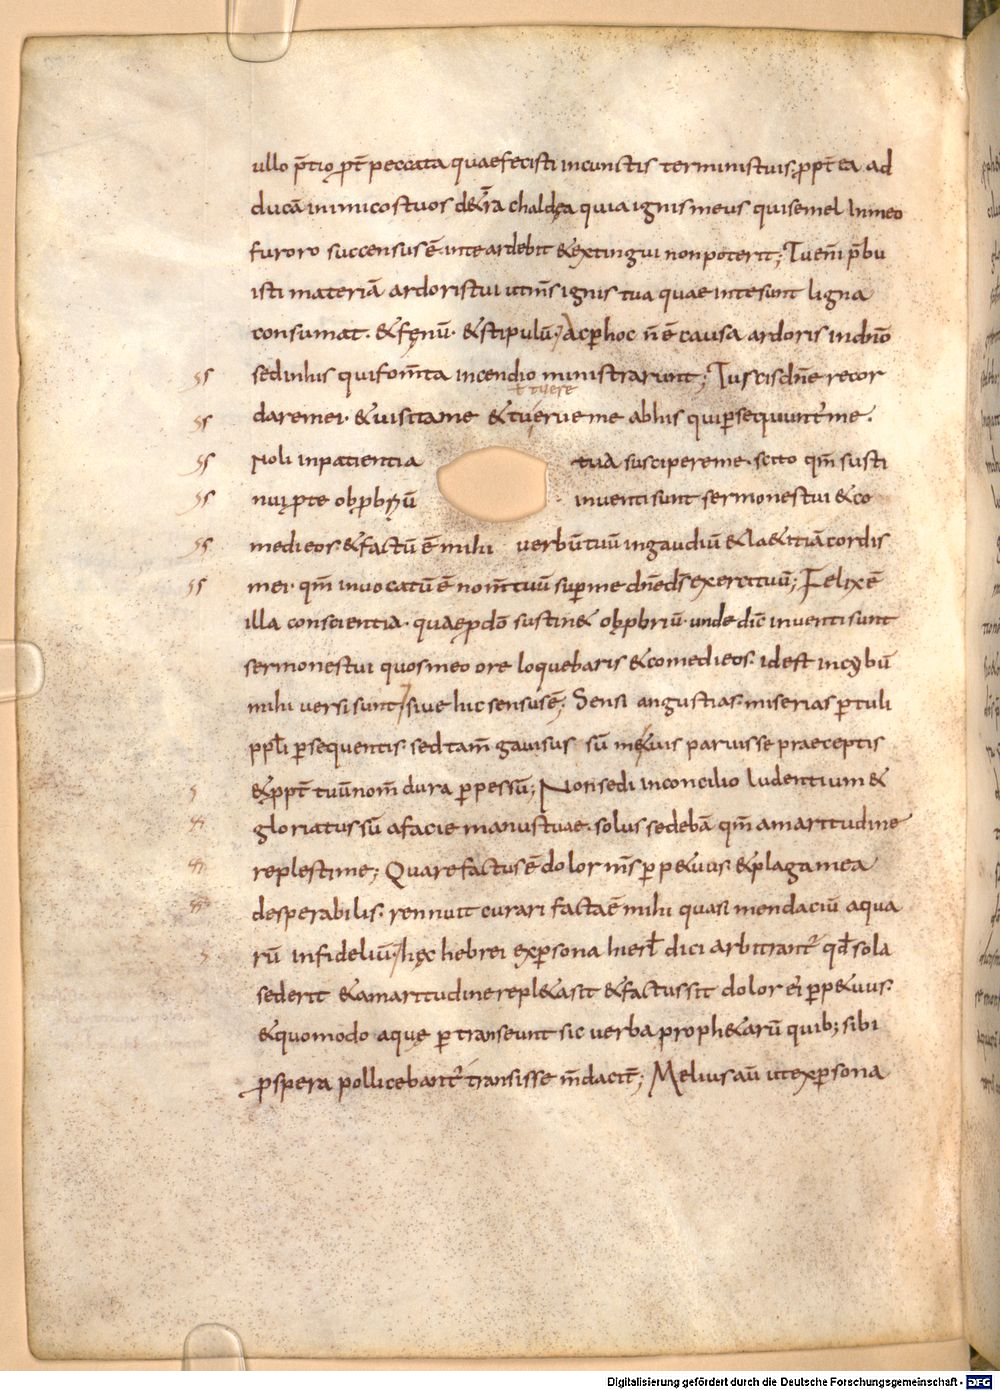 ullo p̄tio pt̄ peccata quae fecisti incunctis terministuis; ꝓpt̄ ea ad
ducā inimicostuos de&t̄ra chaldęa quia ignis meus qui semel In meo
furoro succensus ē. inte ardebit & extingui non poterit; Tu em̄ p̄bu
isti materiā ardoris tui ut om̄s ignis tua quae inte sunt ligna
consumat. & fęnū. & stipulū; Ac ꝑ hoc n̄ ē causa ardoris in dn̄o
sed in his qui fom̄ta incendio ministrarunt; Tu scis dn̄e recor
ꝉ tuere
dare mei. & uisita me & tuere me ab his qui ꝑsequunt̄ me.
ss
ss
ss Noli inpatientia tua suscipere me. scito qm̄ susti
ss nui ꝓ te obꝓbriū inuenti sunt sermones tui & co
ss medi eos. & factū ē mihi uerbū tuū in gaudiū & laetitiā cordis
ss mei. qm̄ inuocatū ē nom̄ tuū suꝑ me dn̄e ds̄ exercituū; Felix ē
illa conscientia. quae ꝓ dō sustin& obꝓbriū. unde dic̄ inuenti sunt
sermones tui quos meo ore loquebaris & comedi eos. id est in cybū
mihi uersi sunt, siue hic sensus ē; Sensi angustias. miserias ꝑtuli
ppl̄i ꝑsequentis. sed tam̄ gauisus sū me tuis paruisse praeceptis
& ꝓpt̄ tuū nom̄ dura ꝑpessū; Non sedi in concilio ludentium &
gloriatus sū a facie manus tuae. solus sedebā qm̄ amaritudine
replesti me; Quare factus ē dolor m̄s ꝑp&uus. & plaga mea
desperabilis. rennuit curari facta ē mihi quasi mendaciū aqua
rū infideliū; hęc hebrei ex ꝑsona hierl̄ dici arbitrant̄ qd̄ sola
sederit & amaritudine repl&a sit & factus sit dolor ei ꝑp&uus.
& quomodo aquę ꝑtranseunt sic uerba proph&arū quib; sibi
ꝓspera pollicebant̄ transisse m̄dacit̄; Melius aū ut ex ꝑsona
Digitalisierung gefördert durch die Deutsche Forschungsgemeinschaft - DFG